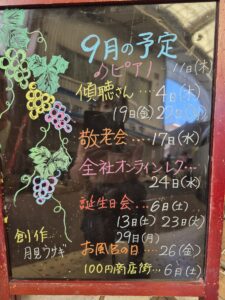 9月の予定
♪ピアノ 11日(木)
傾聴さん…4日(木)
19日(金)22日(月)
敬老会…17日(水)
全社オンラインレク…
24日(水)
誕生日会…6日(土)
13日(土)23日(火)
29日(月)
お風呂の日…26(金)
100円商店街…6日(土)
創作
月見ウサギ